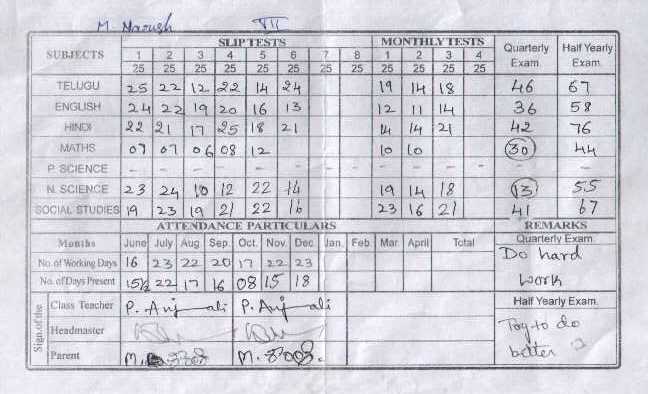 M. Naresh VII
SUBJECTS SLIP TESTS MONTHLY TESTS Quarterly Exam. Half Yearly Exam.
1 2 3 4 5 6 7 8 1 2 3 4
25 25 25 25 25 25 25 25 25 25 25 25
TELUGU 25 22 12 22 14 24 19 14 18 46 67
ENGLISH 24 22 19 20 16 13 12 11 14 36 58
HINDI 22 21 17 25 18 21 14 14 21 42 76
MATHS 07 07 06 08 12 10 10 30 44
P. SCIENCE - - - - - - - - - - -
N. SCIENCE 23 24 10 12 22 14 19 14 18 13 55
SOCIAL STUDIES 19 23 19 21 22 16 23 16 21 41 67
ATTENDANCE PARTICULARS REMARKS
Months June July Aug Sep. Oct. Nov. Dec. Jan. Feb. Mar. April Total Quarterly Exam.
No. of Working Days 16 23 22 20 17 22 23 Do hard
No. of Days Present 15½ 22 17 16 08 15 18 work
Sign. of the
Class Teacher P. Anjali P. Anjali Half Yearly Exam.
Headmaster Try to do
Parent M. M. better